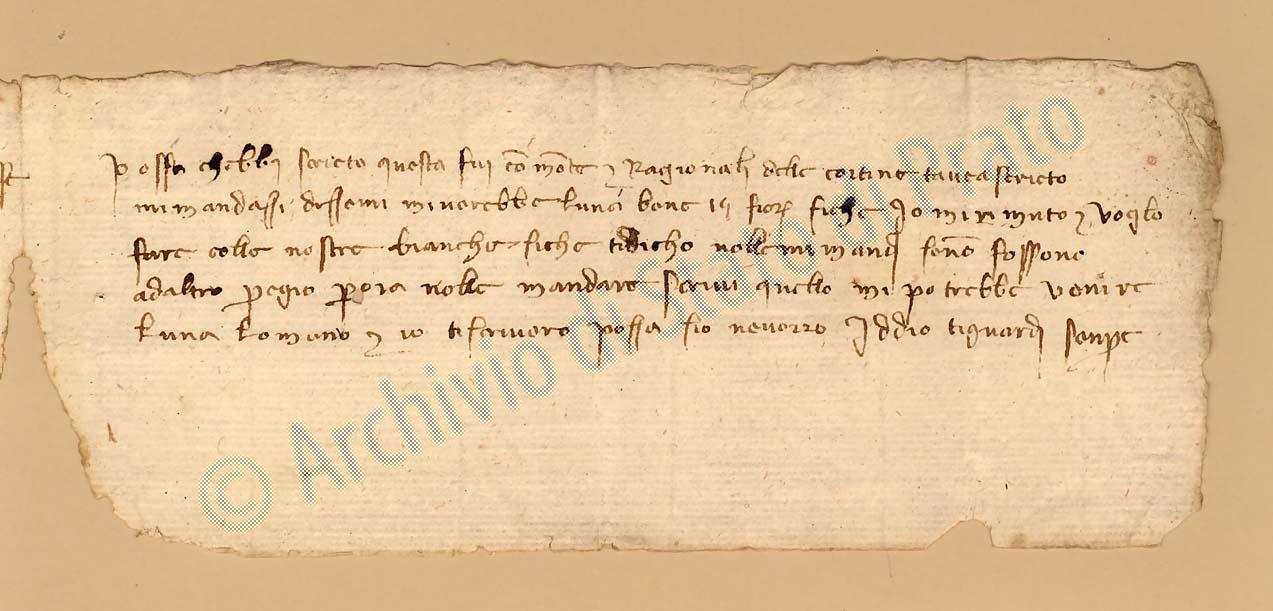 possa chebbi scritto questa fui cō mōte e Ragionali delle cortine taveа scritto
mi mandassi dissemi mi verebbe luna bene 15 fior siche Io mi rimuto e voglo
fare colle nostre bianche siche ti dicho nolle mi mandi senō fossono
adaltro pegio p ora nolle mandare scrivi quello mi potrebbe venire
luna lomeno e io ti scrivero possa sio nevorro Iddio ti guardi senpre
© Archivio di Stato di Prato